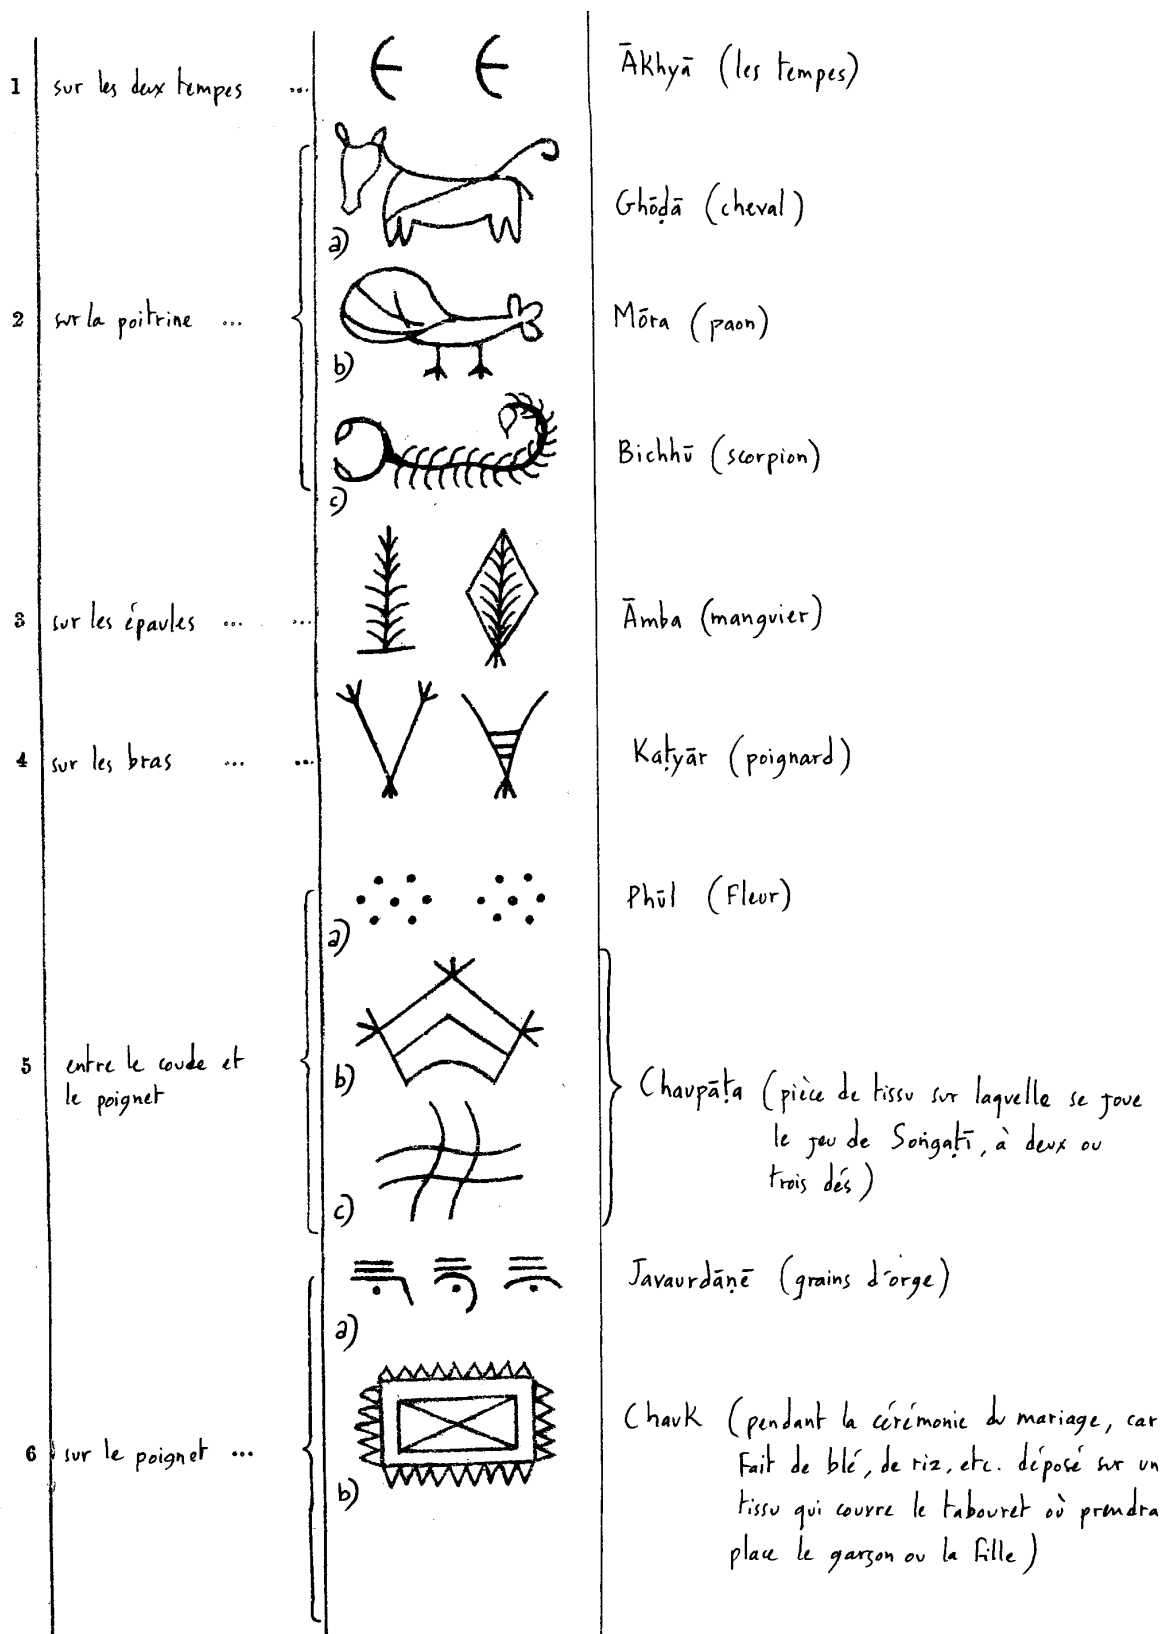 1 sur les deux tempes ... Ākhyā (les tempes)
a) Ghōḍā (cheval)
2 sur la poitrine ... b) Mōra (paon)
c) Bichhū (scorpion)
3 sur les épaules ... ... Āmba (manguier)
4 sur les bras ... ... Kaṭyār (poignard)
a) Phūl (Fleur)
5 entre le coude et
le poignet
b)
c)
Chaupāṭa (pièce de tissu sur laquelle se joue
le jeu de Soṅgaṭī, à deux ou
trois dés)
a) Javaurdāṇē (grains d'orge)
6 sur le poignet ...
b)
Chauk (pendant la cérémonie du mariage, car
Fait de blé, de riz, etc. déposé sur un
tissu qui couvre le tabouret où prendra
place le garçon ou la fille)